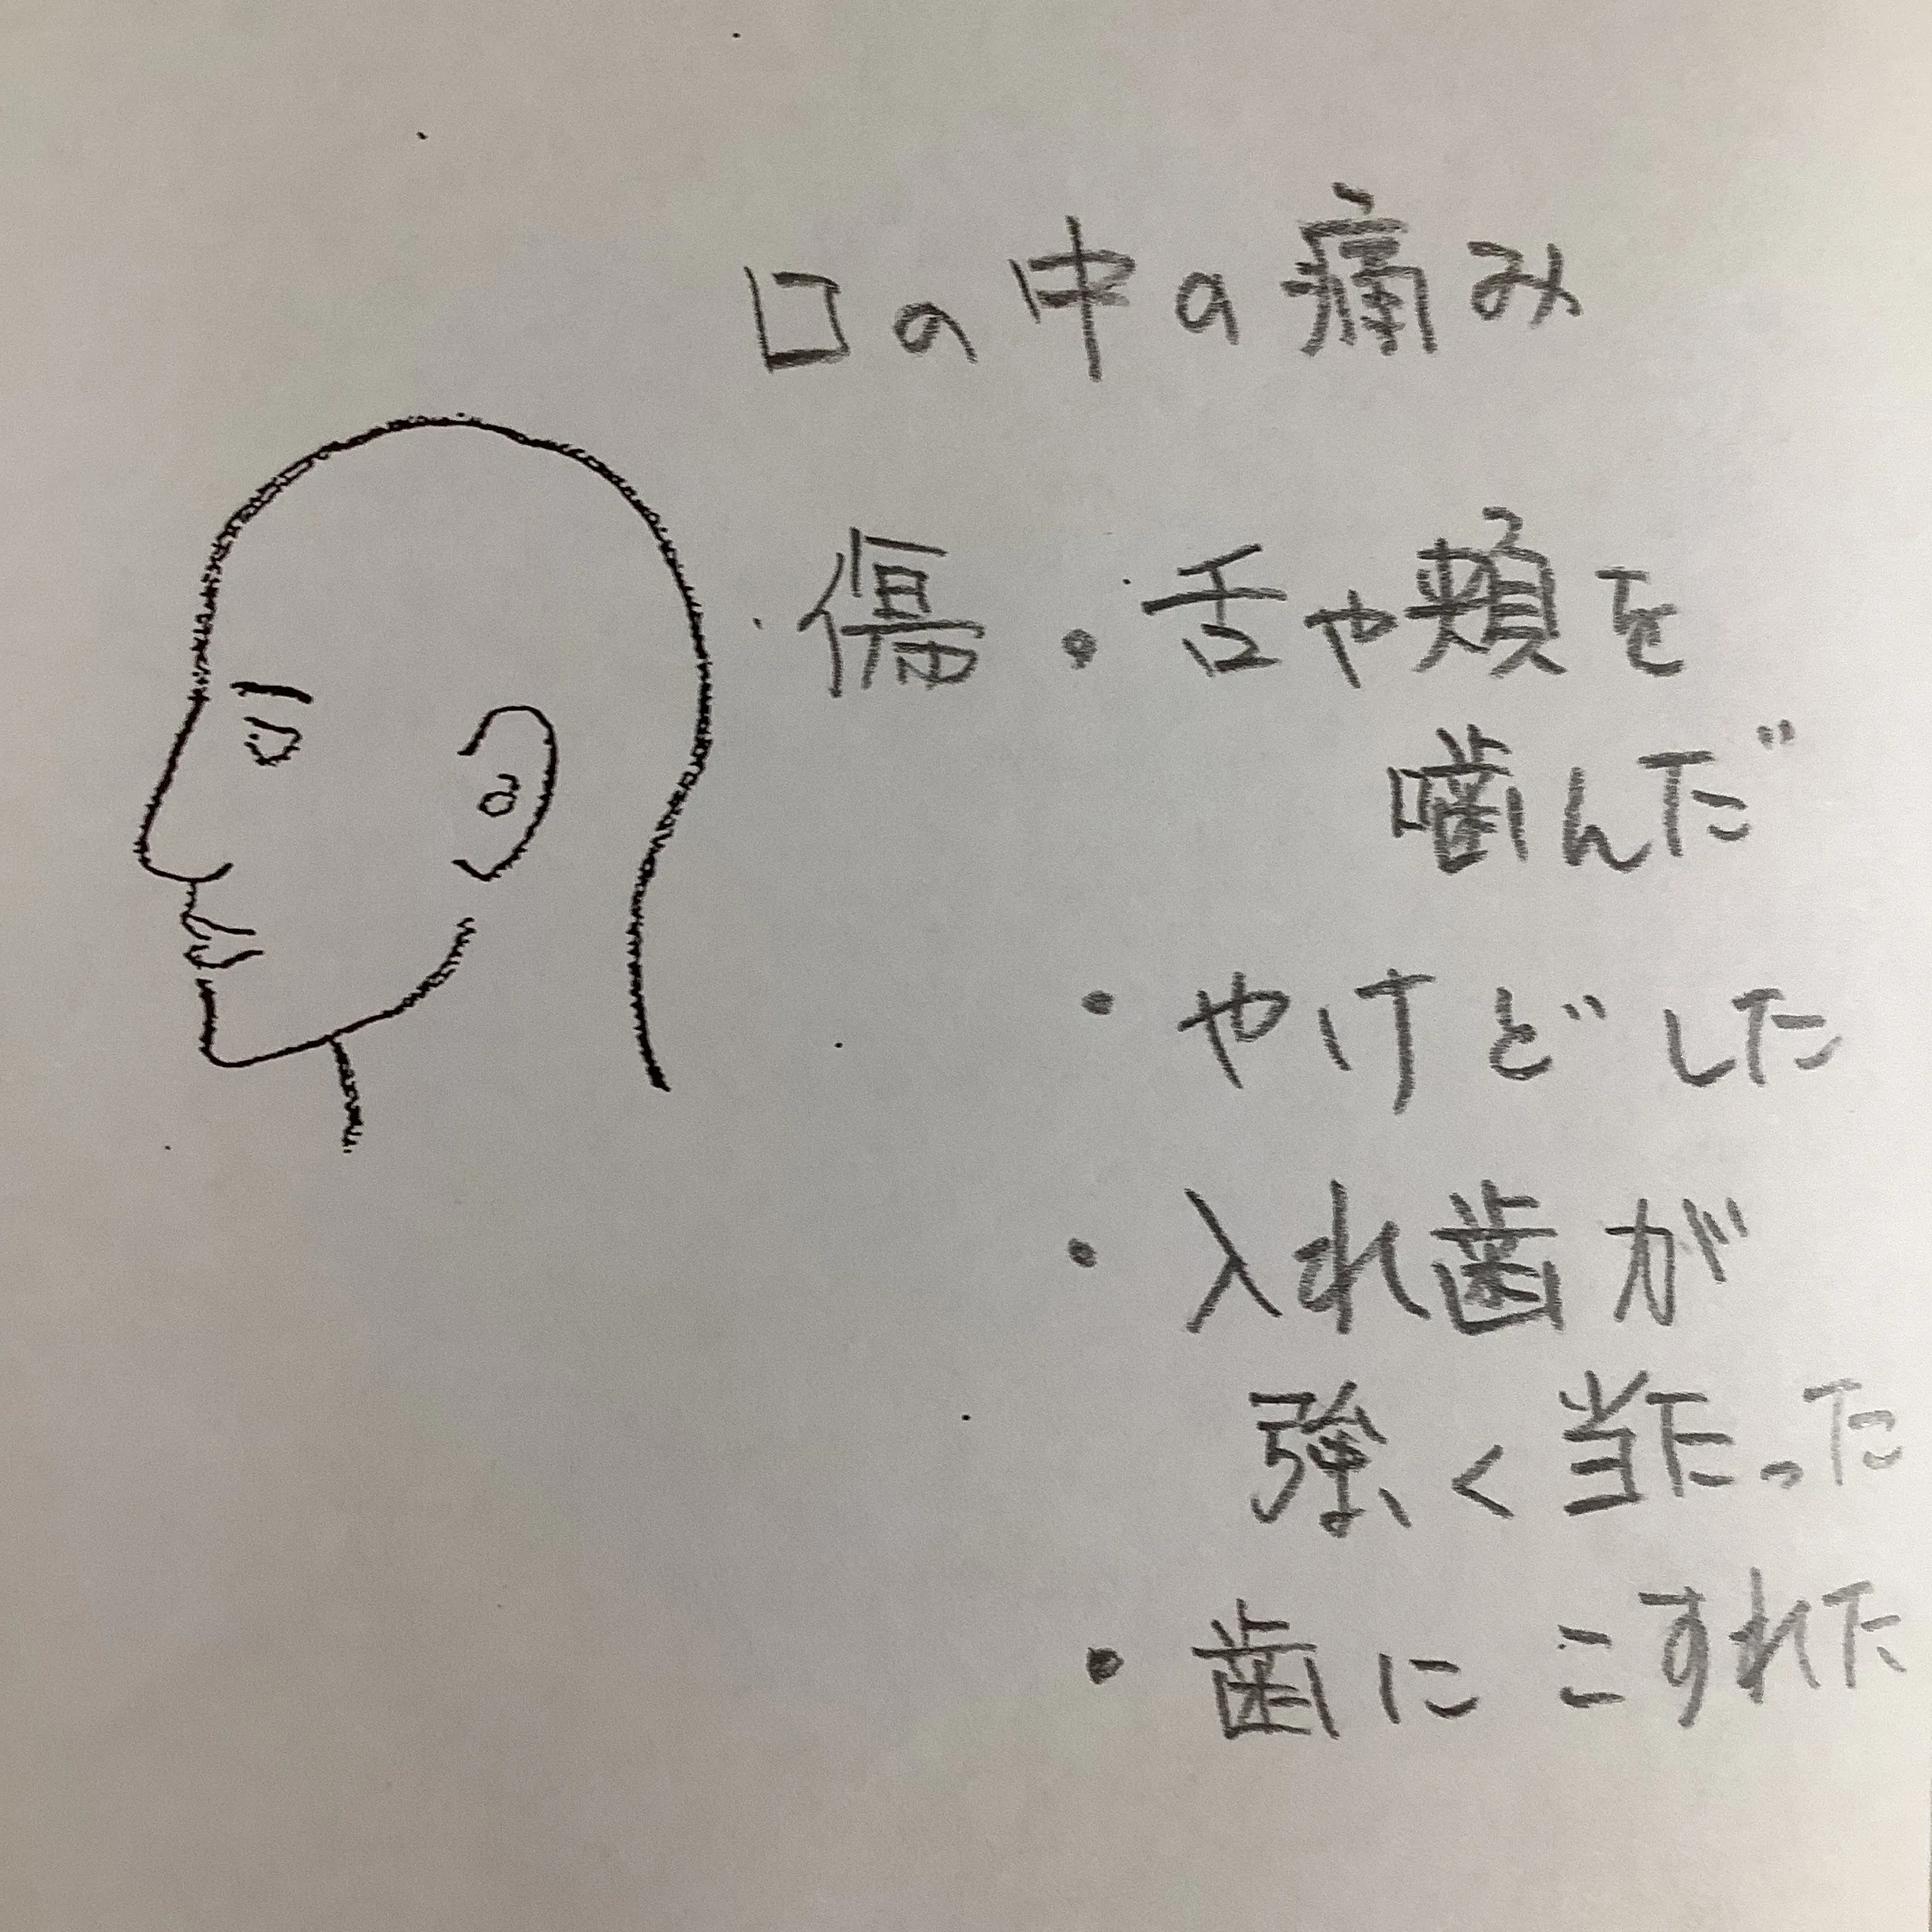 口の中の痛み
・傷 ・舌や頬を
噛んだ
・やけどした
・入れ歯が
強く当たった
・歯にこすれた